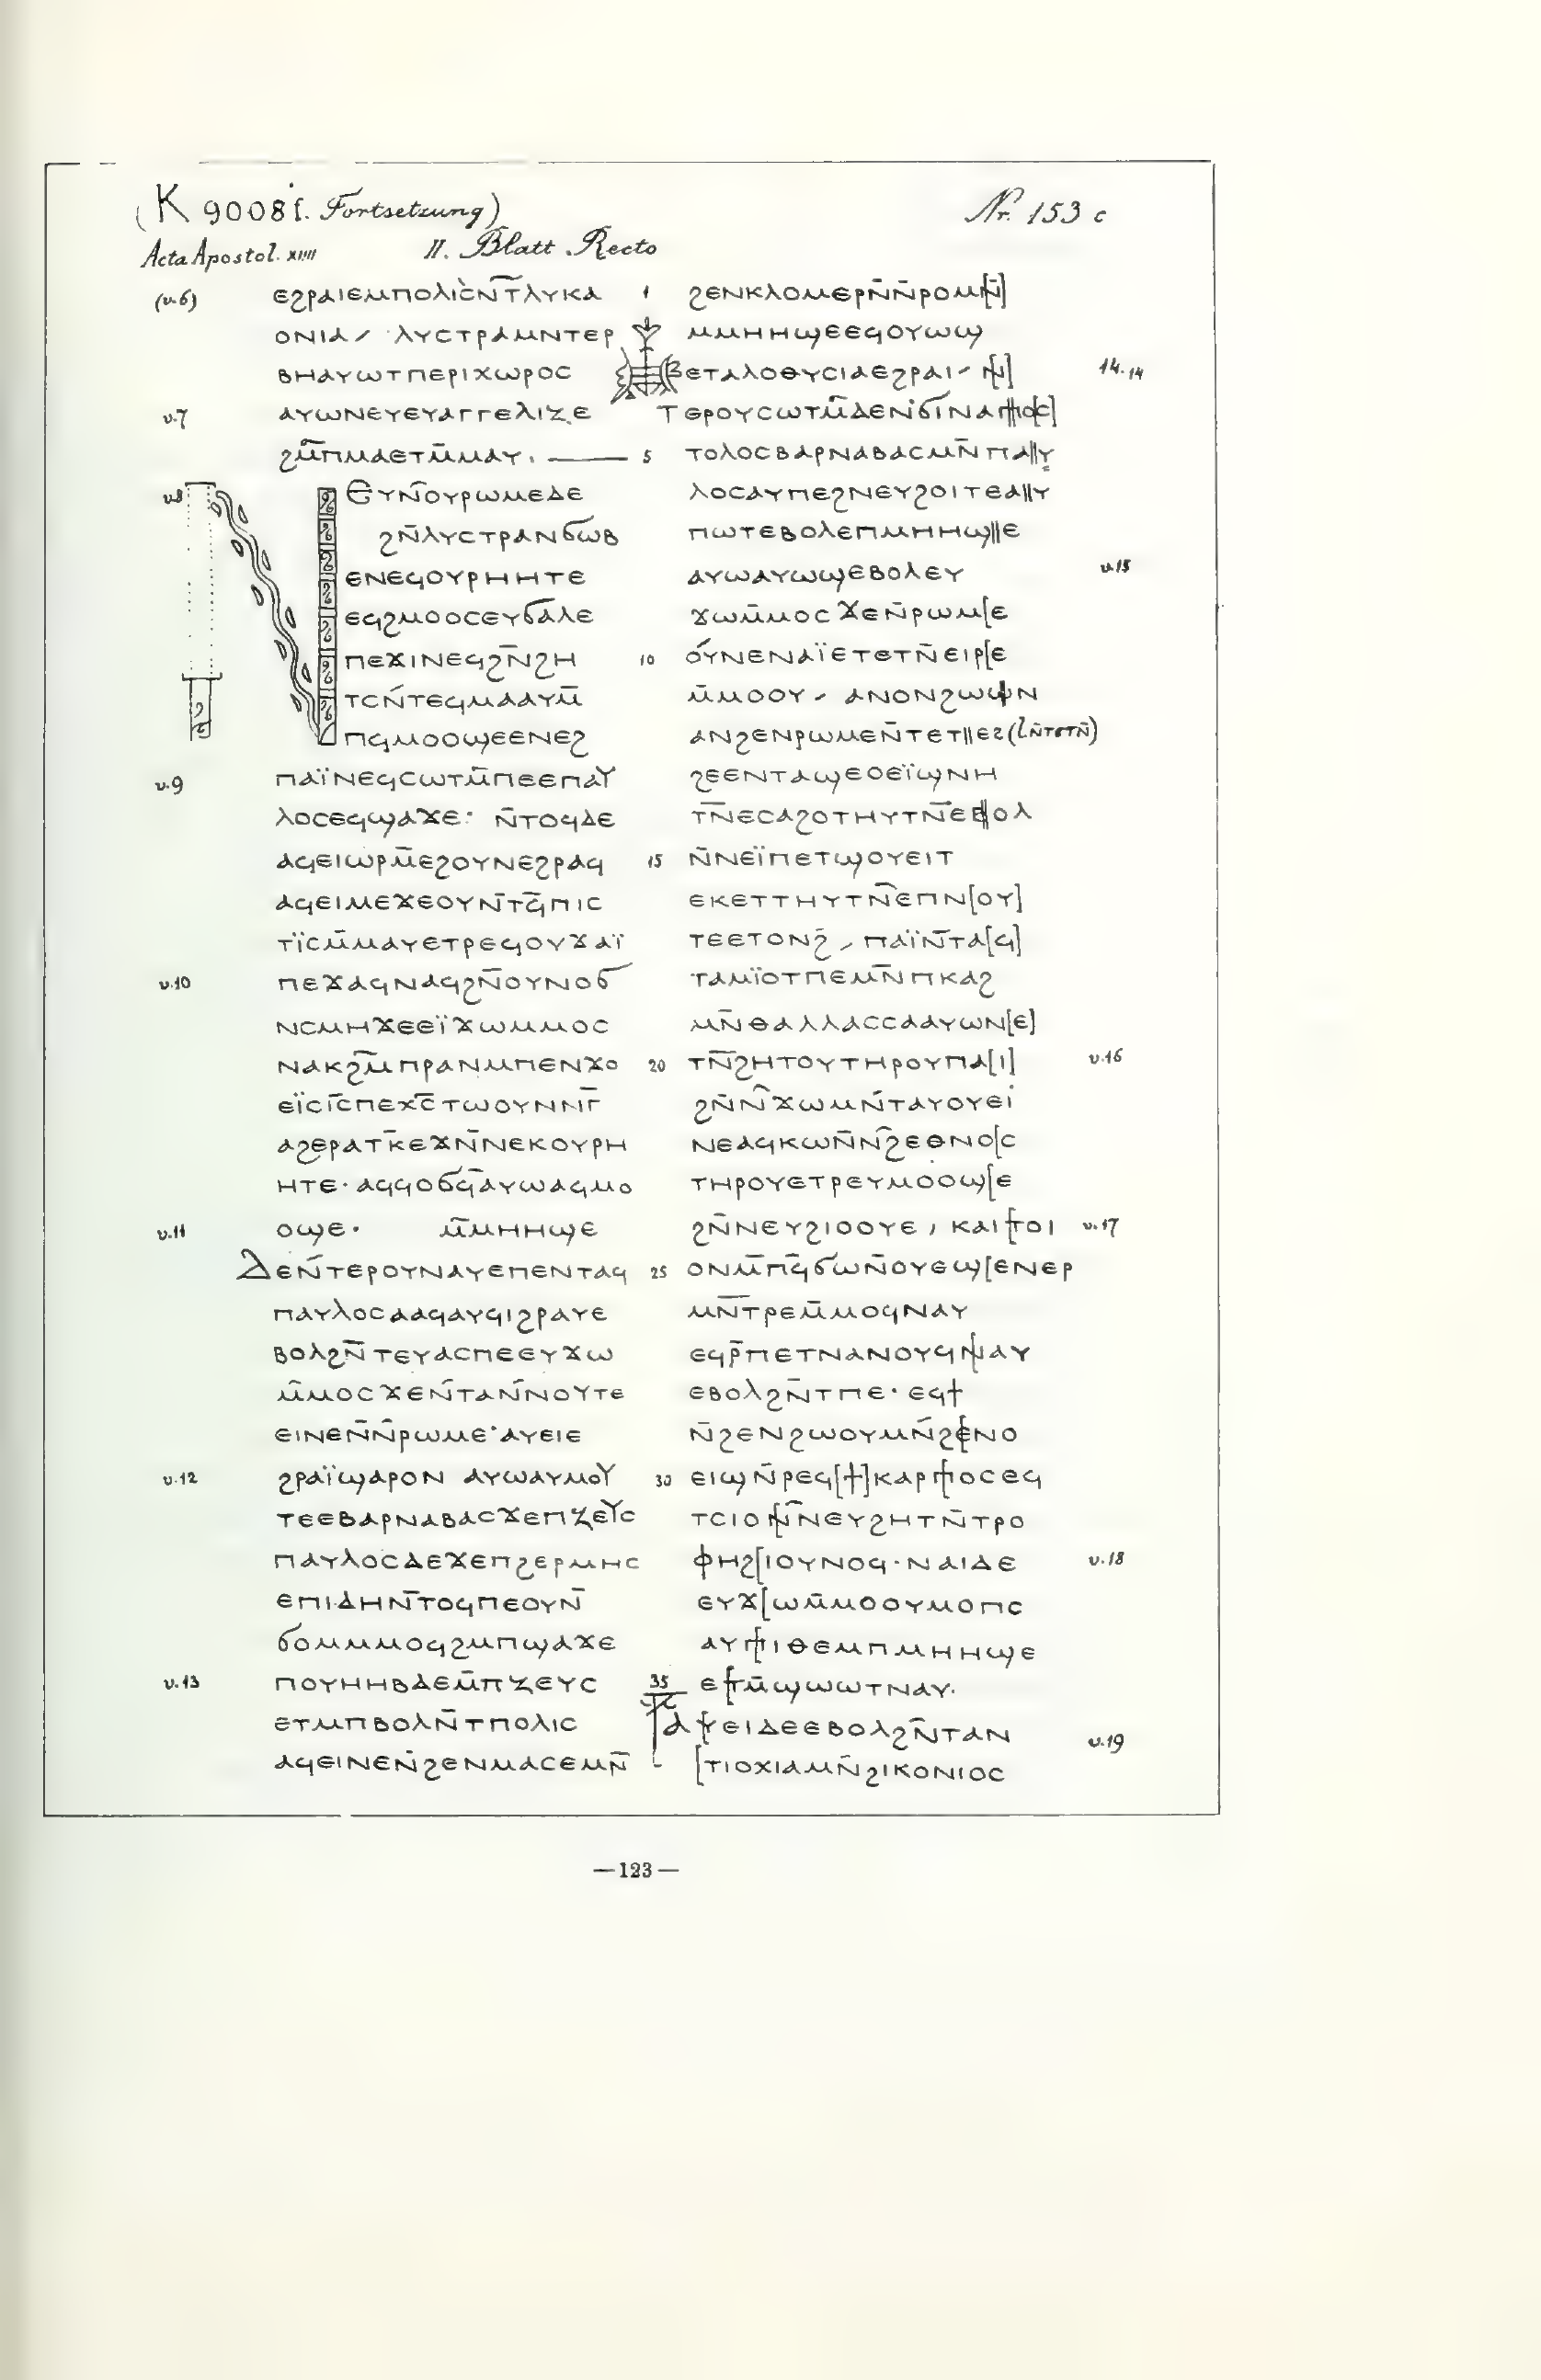 (K 9008 f. Fortsetzung)
Nr. 153 c
Acta Apostol. XIIII
II. Blatt Recto
(v.6) ⲉϩⲣⲁⲓⲉⲙⲡⲟⲗⲓⲥⲛ̄ⲧⲗⲩⲕⲁ
ⲟⲛⲓⲁ / ⲗⲩⲥⲧⲣⲁⲙⲛⲧⲉⲣ
ⲃⲏⲁⲩⲱⲧⲡⲉⲣⲓⲭⲱⲣⲟⲥ
v.7 ⲁⲩⲱⲛⲉⲩⲉⲩⲁⲅⲅⲉⲗⲓⲍⲉ
ϩⲙ̄ⲡⲙⲁⲉⲧⲙ̄ⲙⲁⲩ.
v.8 ⲉⲩⲛ̄ⲟⲩⲣⲱⲙⲉⲇⲉ
ϩⲛ̄ⲗⲩⲥⲧⲣⲁⲛϭⲱⲃ
ⲉⲛⲉϥⲟⲩⲣⲏⲏⲧⲉ
ⲉϥϩⲙⲟⲟⲥⲉⲩϭⲁⲗⲉ
ⲡⲉϫⲓⲛⲉϥϩⲛ̄ϩⲏ
ⲧⲥⲛ̄ⲧⲉϥⲙⲁⲁⲩⲙ̄
ⲡϥⲙⲟⲟϣⲉⲉⲛⲉϩ
v.9 ⲡⲁⲓ̈ⲛⲉϥⲥⲱⲧⲙ̄ⲡⲉⲉⲡⲁⲩ
ⲗⲟⲥⲉϥϣⲁϫⲉ· ⲛ̄ⲧⲟϥⲇⲉ
ⲁϥⲉⲓⲱⲣⲙ̄ⲉϩⲟⲩⲛⲉϩⲣⲁϥ
ⲁϥⲉⲓⲙⲉϫⲉⲟⲩⲛ̄ⲧϥ̄ⲡⲓⲥ
ⲧⲓ̈ⲥⲙ̄ⲙⲁⲩⲉⲧⲣⲉϥⲟⲩϫⲁⲓ̈
v.10 ⲡⲉϫⲁϥⲛⲁϥϩⲛ̄ⲟⲩⲛⲟϭ
ⲛⲥⲙⲏϫⲉⲉⲓ̈ϫⲱⲙⲙⲟⲥ
ⲛⲁⲕϩⲙ̄ⲡⲣⲁⲛⲙⲡⲉⲛϫⲟ
ⲉⲓ̈ⲥⲓ̅ⲥ̅ⲡⲉⲭ̅ⲥ̅ⲧⲱⲟⲩⲛⲛⲅ̄
ⲁϩⲉⲣⲁⲧⲕ̄ⲉϫⲛ̄ⲛⲉⲕⲟⲩⲣⲏ
ⲏⲧⲉ· ⲁϥϥⲟϭϥ̄ⲁⲩⲱⲁϥⲙⲟ
v.11 ⲟϣⲉ· ⲙ̄ⲙⲏⲏϣⲉ
ⲇⲉⲛ̄ⲧⲉⲣⲟⲩⲛⲁⲩⲉⲡⲉⲛⲧⲁϥ
ⲡⲁⲩⲗⲟⲥⲁⲁϥⲁⲩϥⲓϩⲣⲁⲩⲉ
ⲃⲟⲗϩⲛ̄ⲧⲉⲩⲁⲥⲡⲉⲉⲩϫⲱ
ⲙ̄ⲙⲟⲥϫⲉⲛ̄ⲧⲁⲛ̄ⲛⲟⲩⲧⲉ
ⲉⲓⲛⲉⲛ̄ⲛ̄ⲣⲱⲙⲉ·ⲁⲩⲉⲓⲉ
v.12 ϩⲣⲁⲓ̈ϣⲁⲣⲟⲛ ⲁⲩⲱⲁⲩⲙⲟⲩ
ⲧⲉⲉⲃⲁⲣⲛⲁⲃⲁⲥϫⲉⲡⲍⲉⲩⲥ
ⲡⲁⲩⲗⲟⲥⲇⲉϫⲉⲡϩⲉⲣⲙⲏⲥ
ⲉⲡⲓⲇⲏⲛ̄ⲧⲟϥⲡⲉⲟⲩⲛ̄
ϭⲟⲙⲙⲙⲟϥϩⲙⲡϣⲁϫⲉ
v.13 ⲡⲟⲩⲏⲏⲃⲇⲉⲙ̄ⲡⲍⲉⲩⲥ
ⲉⲧⲙⲡⲃⲟⲗⲛ̄ⲧⲡⲟⲗⲓⲥ
ⲁϥⲉⲓⲛⲉⲛ̄ϩⲉⲛⲙⲁⲥⲉⲙⲛ̄
1 ϩⲉⲛⲕⲗⲟⲙⲉⲣⲛ̄ⲛ̄ⲣⲟⲙ[ⲛ̄]
ⲙⲙⲏⲏϣⲉⲉϥⲟⲩⲱϣ
ⲃⲉⲧⲁⲗⲟⲑⲩⲥⲓⲁⲉϩⲣⲁⲓ / [ⲛ̄] 14.14
ⲧⲉⲣⲟⲩⲥⲱⲧⲙ̄ⲇⲉⲛ̄ϭⲓⲛⲁⲡⲟ[ⲥ]
5 ⲧⲟⲗⲟⲥⲃⲁⲣⲛⲁⲃⲁⲥⲙⲛ̄ⲡⲁⲩ
ⲗⲟⲥⲁⲩⲡⲉϩⲛⲉⲩϩⲟⲓⲧⲉⲁⲩ
ⲡⲱⲧⲉⲃⲟⲗⲉⲡⲙⲏⲏϣⲉ
ⲁⲩⲱⲁⲩⲱϣⲉⲃⲟⲗⲉⲩ v.15
ϫⲱⲙ̄ⲙⲟⲥϫⲉⲛ̄ⲣⲱⲙ[ⲉ
10 ⲟⲩⲛⲉⲛⲁⲓ̈ⲉⲧⲉⲧⲛ̄ⲉⲓⲣ[ⲉ
ⲙ̄ⲙⲟⲟⲩ / ⲁⲛⲟⲛϩⲱⲱⲛ
ⲁⲛϩⲉⲛⲣⲱⲙⲉⲛ̄ⲧⲉⲧ||ⲉϩ(lⲛ̄ⲧⲉⲧⲛ̄)
ϩⲉⲉⲛⲧⲁϣⲉⲟⲉⲓ̈ϣⲛⲏ
ⲧⲛ̄ⲉⲥⲁϩⲟⲧⲏⲩⲧⲛ̄ⲉⲃⲟⲗ
15 ⲛ̄ⲛⲉⲓ̈ⲡⲉⲧϣⲟⲩⲉⲓⲧ
ⲉⲕⲉⲧⲧⲏⲩⲧⲛ̄ⲉⲡⲛ[ⲟⲩ]
ⲧⲉⲉⲧⲟⲛϩ̄ / ⲡⲁⲓ̈ⲛ̄ⲧⲁ[ϥ]
ⲧⲁⲙⲓ̈ⲟⲧⲡⲉⲙⲛ̄ⲡⲕⲁϩ
ⲙⲛ̄ⲑⲁⲗⲗⲁⲥⲥⲁⲁⲩⲱⲛ[ⲉ]
20 ⲧⲛ̄ϩⲏⲧⲟⲩⲧⲏⲣⲟⲩⲡⲁ[ⲓ] v.16
ϩⲛ̄ⲛ̄ϫⲱⲙⲛ̄ⲧⲁⲩⲟⲩⲉⲓ
ⲛⲉⲁϥⲕⲱⲛ̄ⲛ̄ϩⲉⲑⲛⲟ[ⲥ
ⲧⲏⲣⲟⲩⲉⲧⲣⲉⲩⲙⲟⲟϣ[ⲉ
ϩⲛ̄ⲛⲉⲩϩⲓⲟⲟⲩⲉ / ⲕⲁⲓ[ⲧⲟⲓ v.17
25 ⲟⲛⲙ̄ⲡϥ̄ϭⲱⲛ̄ⲟⲩⲉϣ[ⲉⲛⲉⲣ
ⲙⲛ̄ⲧⲣⲉⲙ̄ⲙⲟϥⲛⲁⲩ
ⲉϥⲣ̄ⲡⲉⲧⲛⲁⲛⲟⲩϥⲛⲁⲩ
ⲉⲃⲟⲗϩⲛ̄ⲧⲡⲉ· ⲉϥϯ
ⲛ̄ϩⲉⲛϩⲱⲟⲩⲙⲛ̄ϩⲉⲛⲟ
30 ⲉⲓϣⲛ̄ⲣⲉϥ[ϯ]ⲕⲁⲣⲡⲟⲥⲉϥ
ⲧⲥⲓⲟⲛ̄ⲛⲉⲩϩⲏⲧⲛ̄ⲧⲣⲟ
ⲫⲏϩ[ⲓⲟⲩⲛⲟϥ· ⲛⲁⲓⲇⲉ v.18
ⲉⲩϫ[ⲱⲙ̄ⲙⲟⲟⲩⲙⲟⲡⲥ
ⲁⲩⲡⲓⲑⲉⲙⲡⲙⲏⲏϣⲉ
35 ⲉⲧⲙ̄ϣⲱⲱⲧⲛⲁⲩ.
ⲁⲩⲉⲓⲇⲉⲉⲃⲟⲗϩⲛ̄ⲧⲁⲛ v.19
[ⲧⲓⲟⲭⲓⲁⲙⲛ̄ϩⲓⲕⲟⲛⲓⲟⲥ
—123—